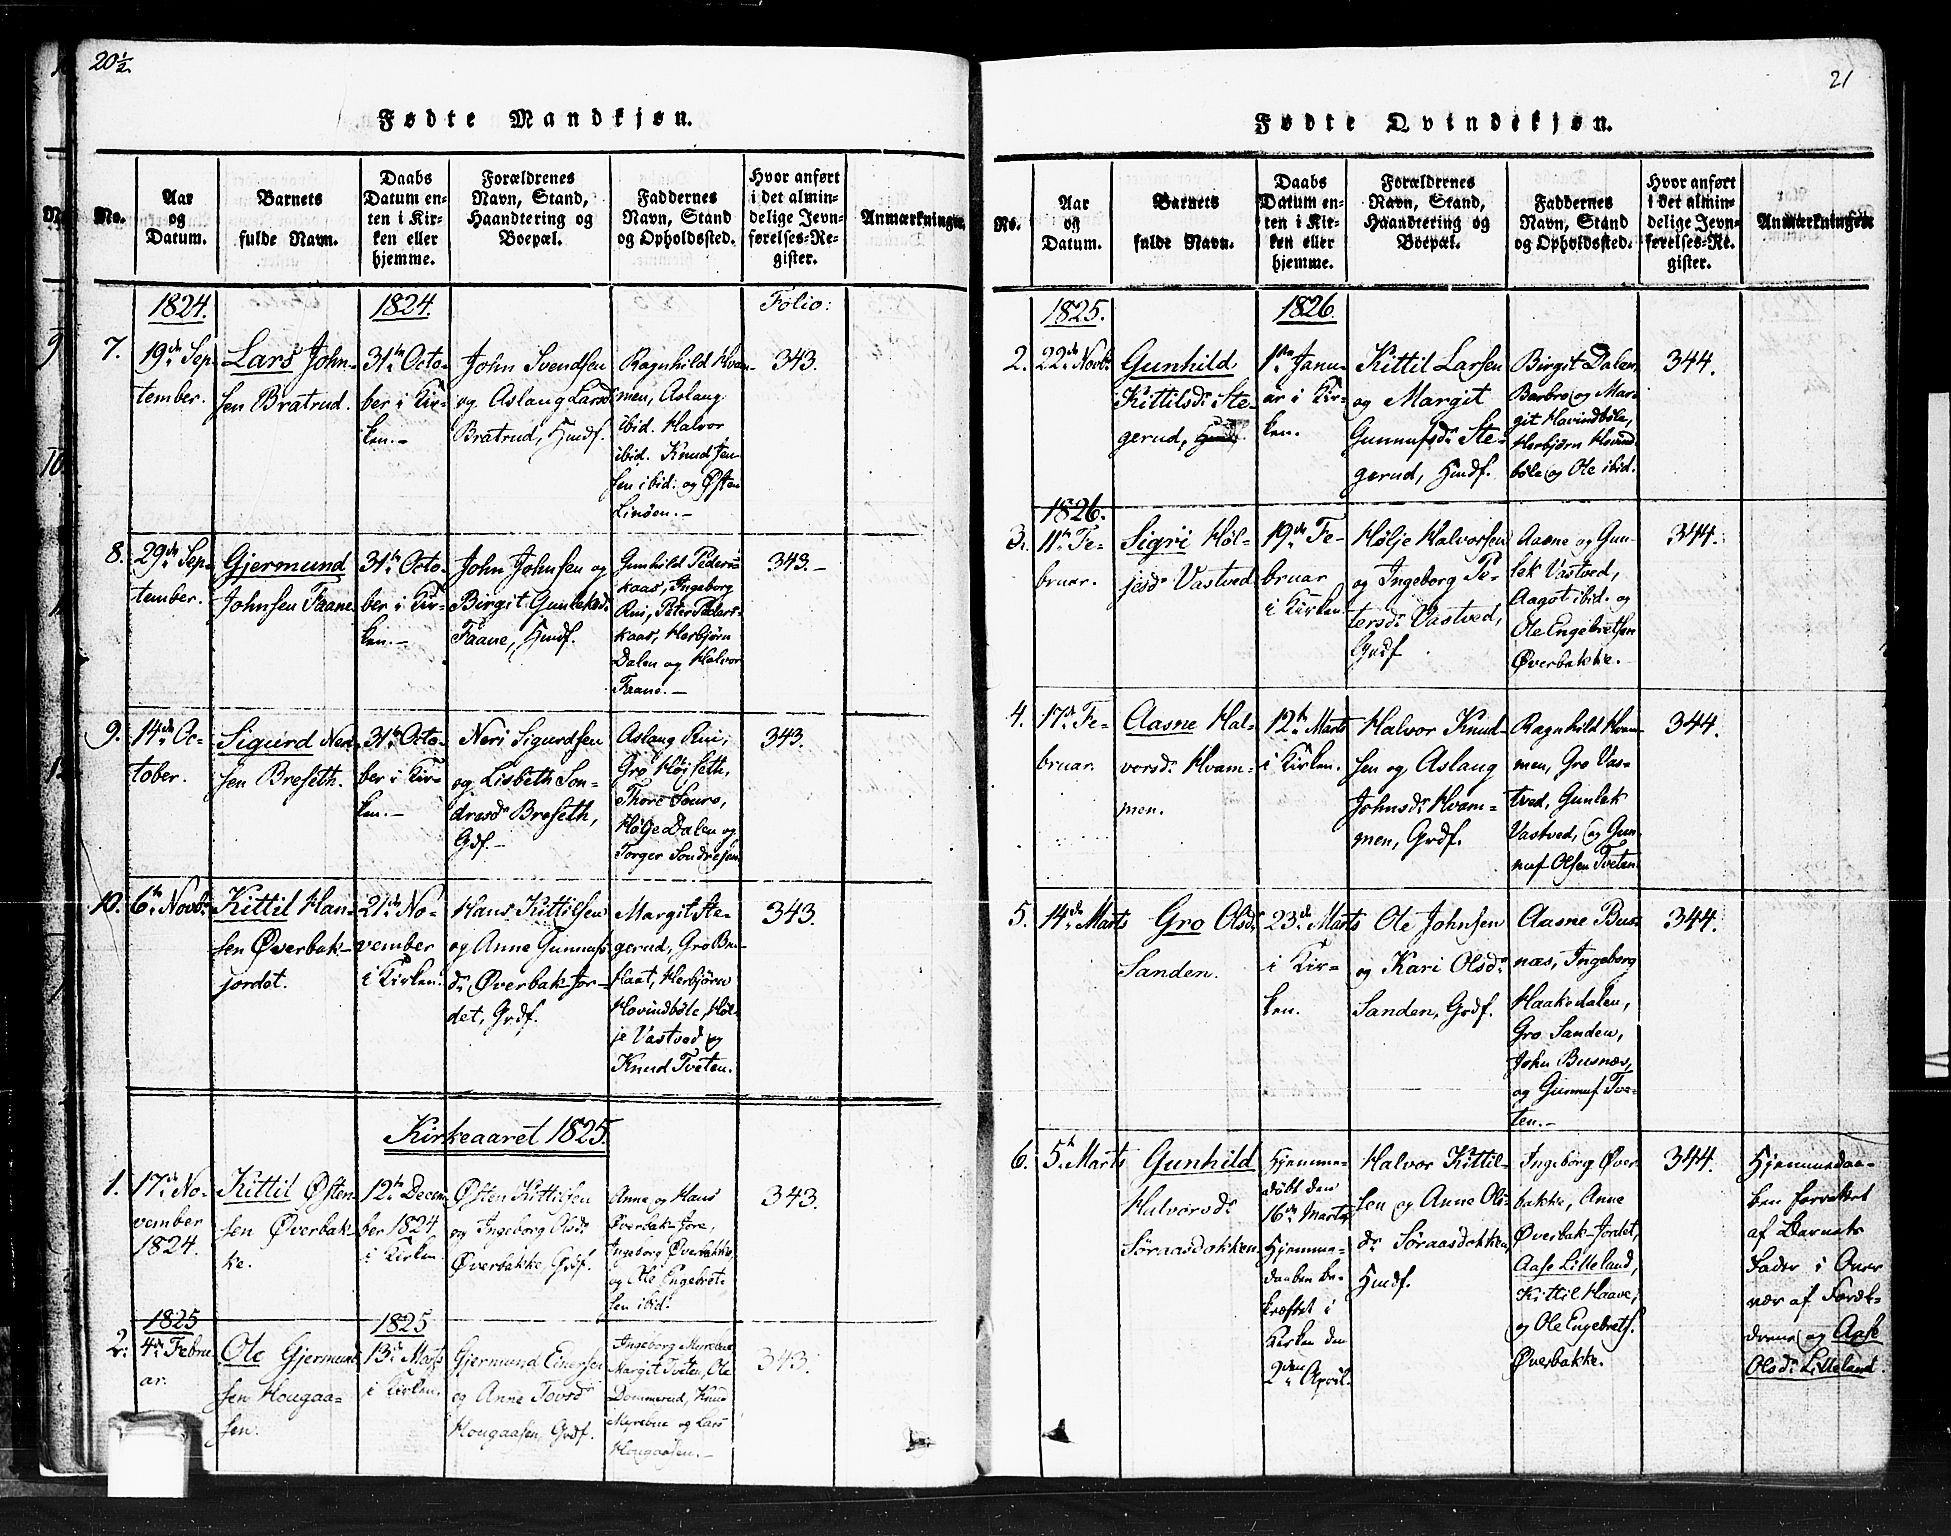 20 1/2
Fødte Mandkjøn.
No.
Aar
og
Datum.
Barnets
fulde Navn.
Daabs
Datum en-
ten i Kir-
ken eller
hjemme.
Forældrenes
Navn, Stand,
Haandtering og
Boepæl.
Faddernes
Navn, Stand
og Opholdssted.
Hvor anført
i det almin-
delige Jevn-
førelses-Re-
gister.
Anmærkninger.
1824.
1824.
Folio:
7.
19de Sep-
tember.
Lars John-
sen Bratrud.
31te Octo-
ber i Kir-
ken.-
John Svendsen
og Aslaug Larsd.
Bratrud, Hmdf.
Ragnhild Hvam-
men, Aslaug
ibid. Halvor
ibid. Knud Jen-
sen ibid: og Østen
Linøen.-
343.
8.
29de Sep-
tember.
Gjermund
Johnsen Faane.
31te Octo-
ber i Kir-
ken.-
John Johnsen og
Birgit Gunleksd.
Faane, Hmdf.
Gunhild Peders-
kaas, Ingeborg
Rui, Peter Peders-
kaas, Herbjørn
Dalen og Halvor
Faane.-
343.-
9.
14de Oc-
tober.
Sigurd Neri-
sen Breseth.
31te Octo-
ber i Kir-
ken.-
Neri Sigurdsen
og Lisbeth Son-
dresdr Breseth,
Gdf.-
Aslaug Rui,
Gro Høiseth,
Thore Souro,
Hølje Dalen og
Torger Sondresen
343.
10.
6te Novbr
Kittil Han-
sen Øverbak-
jordet.
21de No-
vember
i Kirken.
Hans Kittilsen
og Anne Gunnufs
dr, Øverbak-Jor-
det, Grdf.
Margit Ste-
gerud, Gro Bru-
flaat, Herbjørn
Hovindbøle, Høl-
je Vastved og
Knud Tveten.
343.
Kirkeaaret 1825.
1.
17de No-
vember
1824.
Kittil Østen-
sen Øverbak-
ke.
12te Decem-
ber 1824
i Kirken.
Østen Kittilsen
og Ingeborg Olsdr
Øverbakke, Grdf.
Anne og Hans
Øverbak-Jore,
Ingeborg Øverbakke,
og Ole Engebret-
sen ibid.
343.
1825
1825
2.
4de Febru-
ar.
Ole Gjermund-
sen Hougaa-
sen.
13de Marts
i Kirken.
Gjermund Einersen
og Anne Tovsdr
Hougaasen, Grdf.
Ingeborg Myrebue
Margit Tveten, Ole
Dommerud, Knud
Myrebue og Lars
Hougaasen.-
343.
21
Fødte Qvindekjøn.
No.
Aar
og
Datum.
Barnets
fulde Navn.
Daabs
Datum en-
ten i Kir-
ken eller
hjemme.
Forældrenes
Navn, Stand,
Haandtering og
Boepæl.
Faddernes
Navn, Stand
og Opholdssted.
Hvor anført
i det almin-
delige Jevn-
førelses-Re-
gister.
Anmærkninger.
1825.
1826.
2.
22de Novbr
Gunhild
Kittilsdr Ste-
gerud,
1ste Janu-
ar i Kir-
ken.
Kittil Larsen
og Margit
Gunnufsdr Ste-
gerud, Hmdf.
Birgit Dalen,
Barbro og Mar-
git Hovindbøle,
Herbjørn Hovind-
bøle og Ole ibid.
344.
1826.
3.
11te Fe-
bruar.
Sigri Høl-
jesdr Vastved
19de Fe-
bruar
i Kirken.
Hølje Halvorsen
og Ingeborg Pe-
tersdr Vastved,
Grdf
Aasne og Gun-
lek Vastved,
Aagot ibid. og
Ole Engebretsen
Øverbakke.
344.
4.
17de Fe-
bruar.
Aasne Hal-
vorsdr Hvam-
men.
12te Marts
i Kirken.
Halvor Knud-
sen og Aslaug
Johnsdr Hvam-
men, Grdf.
Ragnhild Hvam-
men, Gro Vas-
tved, Gunlek
Vastved, og Gun-
nuf Olsen Tveten
344.
5.
14de Marts
Gro Olsdr
Sanden.
23de Marts
i Kir-
ken.
Ole Johnsen
og Kari Olsdr
Sanden, Grdf.
Aasne Bus-
næs, Ingeborg
Haakedalen,
Gro Sanden,
John Busnæs,
og Gunnuf Tve-
ten.-
344.
6.
5te Marts
Gunhild
Halvorsdr
Søraasdokken
Hjemme-
døbt den
16de Marts
Hjemme-
daaben be-
kræftet i
Kirken den
2den April.
Halvor Kittil-
sen og Anne Ols-
dr Søraasdokken,
Hmdf.
Ingeborg Øver-
bakke, Anne
Øverbak-Jordet,
Aase Lilleland,
Kittil Haave,
og Ole Engebrets.
Øverbakke.
344.
Hjemmedaa-
ben forrettet
af Barnets
Fader i Over
vær af Foræl-
drene og Aase
Olsdr Lilleland.